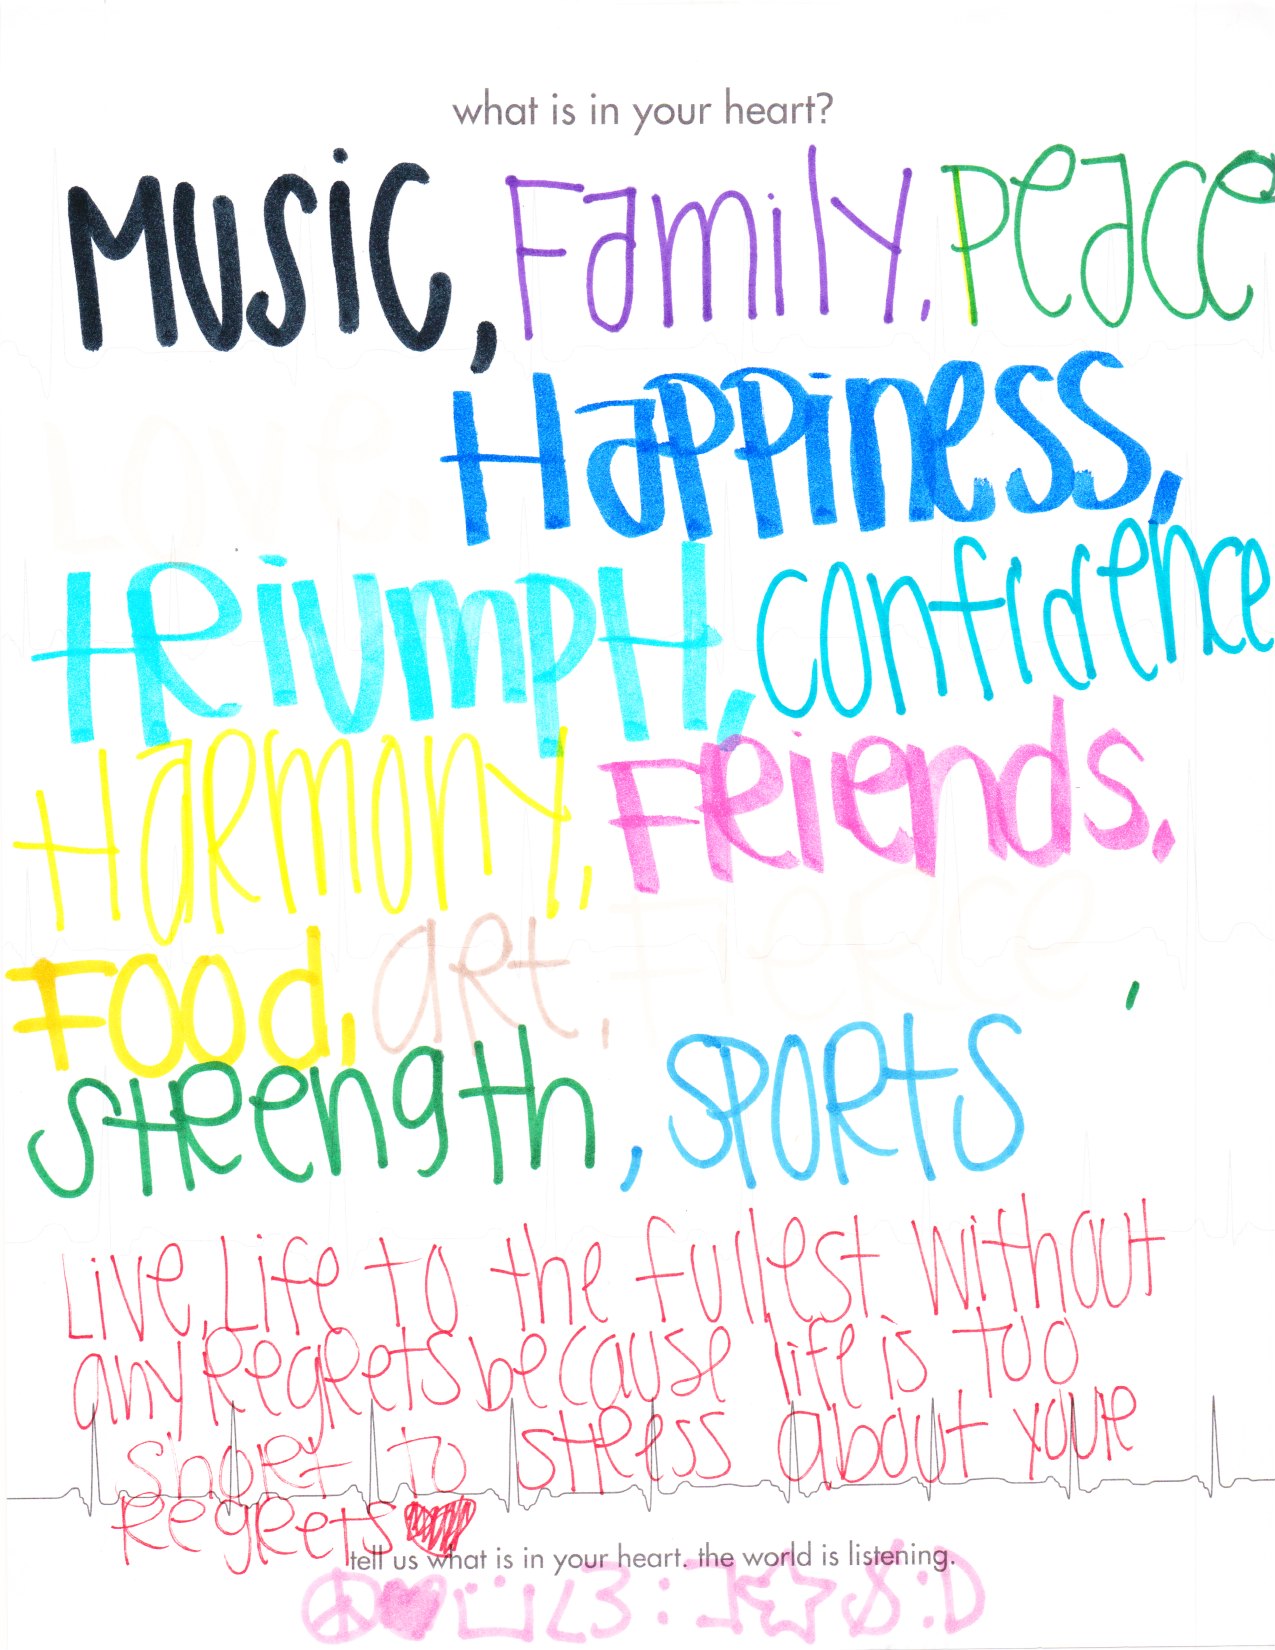 what is in your heart?
Music, Family, Peace
Love, Happiness,
triumph, confidence
Harmony, Friends,
Food, art, Fierce,
Strength, Sports
Live, Life to the fullest without
any Regrets because life is too
short to stress about your
Regrets ♥
tell us what is in your heart. the world is listening.
☮ ♥ Ü <3 :] ☆ 8:D